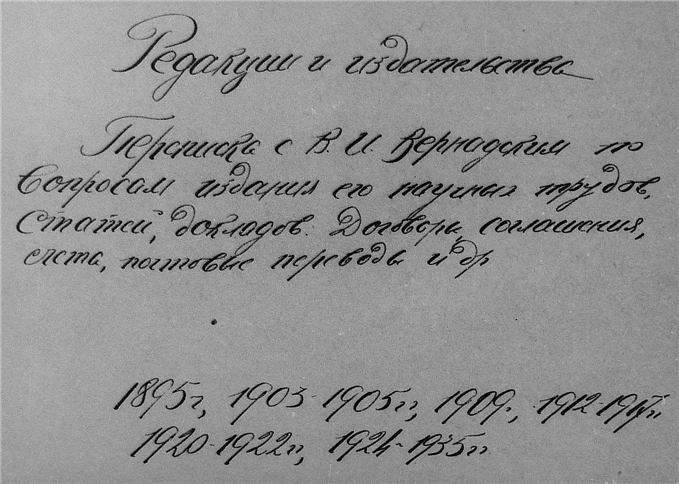 Редакции и издательства
Переписка с В. И. Вернадским по
вопросам издания его научных трудов,
статей, докладов. Договоры, соглашения,
счета, почтовые переводы и др
1895г, 1903-1905гг, 1909г, 1912-1917гг
1920-1922гг, 1924-1935гг